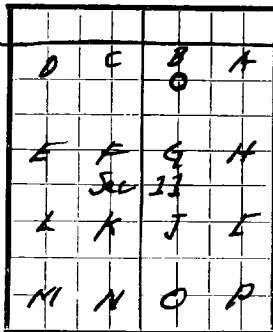 D C B A
E F G H
Sec 11
L K J I
M N O P